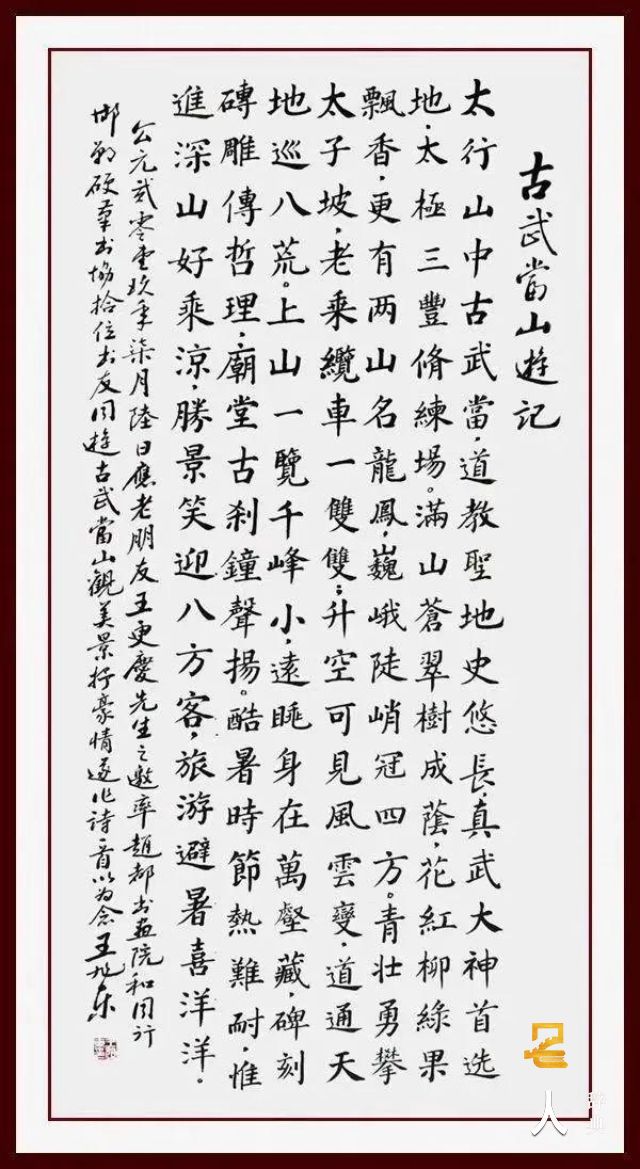 古武當山遊記
太行山中古武當，道教聖地史悠長，真武大神首选
地，太極三豐脩練場。滿山蒼翠樹成蔭，花紅柳綠果
飄香，更有两山名龍鳳，巍峨陡峭冠四方。青壮勇攀
太子坡，老乘纜車一雙雙；升空可見風雲變，道通天
地巡八荒。上山一覽千峰小，遠眺身在萬壑藏，碑刻
磚雕傳哲理，廟堂古刹鐘聲揚。酷暑時節熱難耐，惟
進深山好乘涼，勝景笑迎八方客，旅游避暑喜洋洋．
公元贰零壹玖年柒月陸日應老朋友王更慶先生之邀率趙都书画院和同行
邯鄲硬筆书協拾位书友同遊古武當山觀美景抒豪情遂作詩一首以为念 王旭东
人
辞典